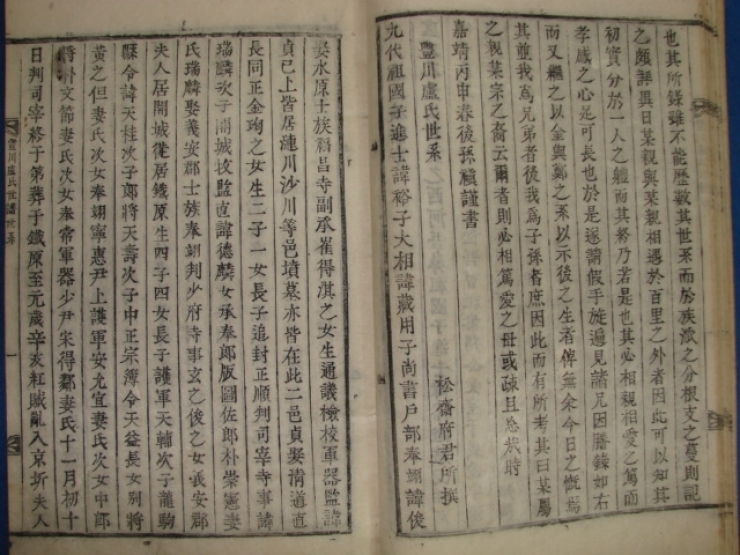 也其所錄雖不能歷數其世系而於族派之分根支之蔓則記
之頗詳異日某親與某親相遇於百里之外者因此可以知其
初實分於一人之軀而其務乃若是也其必相親相愛之篤而
孝感之心是可長也於是遂請假手旋遍見諸兄因謄錄如右
而又繼之以金與鄭之系以示後之生者俾無余今日之慨焉
其並我爲兄弟者後我爲子孫者庶因此而有所考其曰某屬
之親某宗之裔云爾者則必相篤愛之毋或疎且怠哉時
嘉靖丙申春後孫禛謹書
豐川盧氏世系
松齋府君所撰
九代祖國子進士諱裕子大相諱藏用子尚書戶部奉翊諱俊
娶水原士族福昌寺副承崔得淇之女生通議檢校軍器監諱
貞已上皆居漣川沙川等邑墳墓亦皆在此二邑貞娶清道直
長同正金珣之女生二子一女長子追封正順判司宰寺事諱
瑞麟次子開城收監直諱德麟女承奉郎版圖佐郎朴崇憲妻
氏瑞麟娶義安郡士族奉翊判少府寺事玄之俊之女義安郡
夫人居開城從居鐵原生四子四女長子護軍天輔次子龍駒
縣令諱天桂次子郎將天壽次子中正宗簿令天益長女別將
黃之但妻氏次女奉翊寧惠尹上護軍安允宜妻氏次女中郎
將朴文節妻氏次女奉常軍器少尹宋得鄒妻氏十一月初十
日判司宰終于第葬于鐵原至元歲辛亥紅賊亂入京圻夫人
豐川盧氏世譜